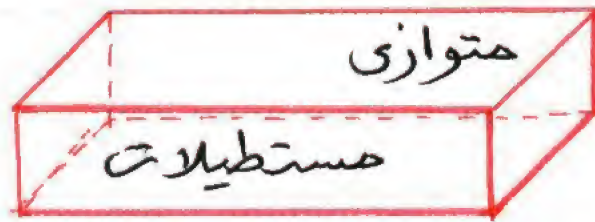 متوازى
مستطيلات